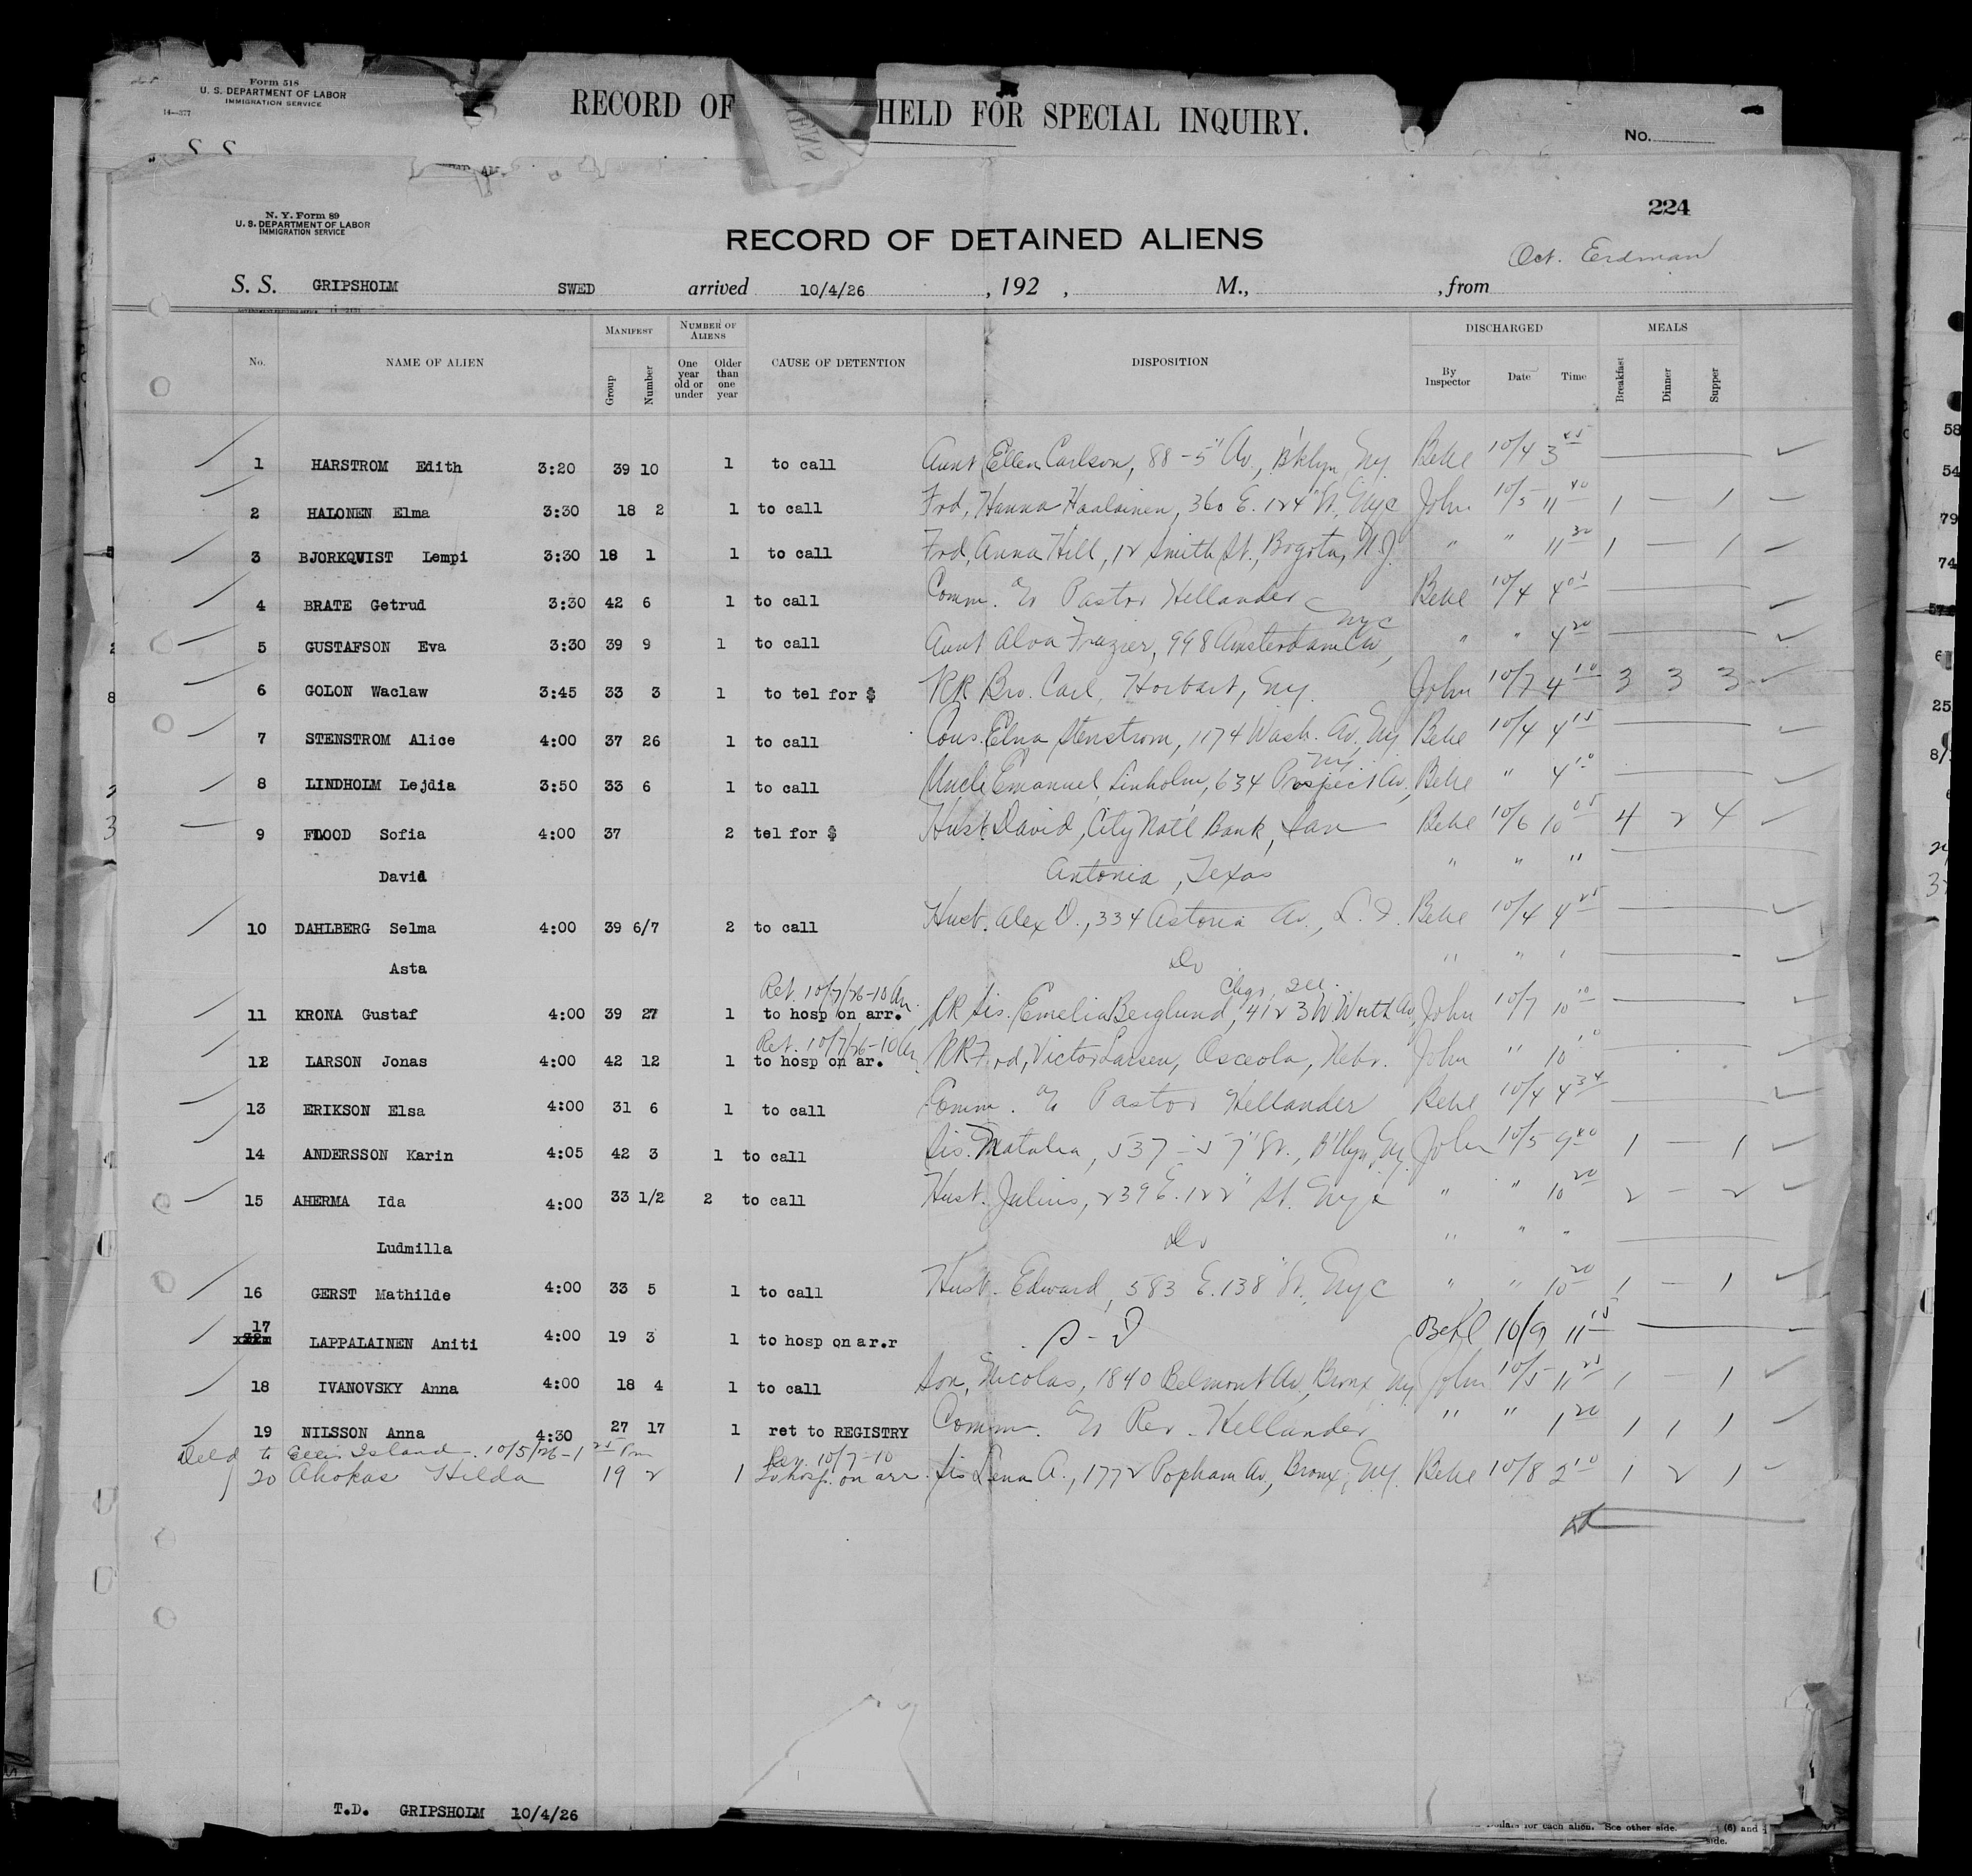 Form 518
U. S. DEPARTMENT OF LABOR
IMMIGRATION SERVICE
14—377
RECORD OF HELD FOR SPECIAL INQUIRY.
No.
S. S.
N. Y. Form 89
U. S. DEPARTMENT OF LABOR
IMMIGRATION SERVICE
224
RECORD OF DETAINED ALIENS
Oct. Erdman
S. S. GRIPSHOLM SWED arrived 10/4/26 , 192 , M., , from
No. NAME OF ALIEN MANIFEST Group Number NUMBER OF ALIENS One year old or under Older than one year CAUSE OF DETENTION DISPOSITION DISCHARGED By Inspector Date Time MEALS Breakfast Dinner Supper
1 HARSTROM Edith 3:20 39 10 1 to call Aunt Ellen Carlson, 88-5" Av., B'klyn, Ny Behe 10/4 3 45
2 HALONEN Elma 3:30 18 2 1 to call Frd, Hanna Haalainen, 360 E. 124" St. Nyc John 10/5 11 40 1 — 1
3 BJORKQVIST Lempi 3:30 18 1 1 to call Frd, Anna Hill, 12 Smith St., Bogota, N.J. " " 11 30 1 — 1
4 BRATE Getrud 3:30 42 6 1 to call Comm. Pastor Hellander Behe 10/4 4 05
5 GUSTAFSON Eva 3:30 39 9 1 to call Aunt Alva Frazier, 998 Amsterdam Av, Nyc " " 4 20
6 GOLON Waclaw 3:45 33 3 1 to tel for $ RR Bro. Carl, Horbart, Ny. John 10/7 4 10 3 3 3
7 STENSTROM Alice 4:00 37 26 1 to call Cous. Elna Stenstrom, 1174 Wash. Av. Ny Behe 10/4 4 15
8 LINDHOLM Lejdia 3:50 33 6 1 to call Uncle Emanuel Linholm, 634 Prospect Av., Ny. Behe " 4 10
9 FLOOD Sofia 4:00 37 2 tel for $ Husb. David, City Nat'l Bank, San Behe 10/6 10 05 4 2 4
David Antonia, Texas " " "
10 DAHLBERG Selma 4:00 39 6/7 2 to call Husb. Alex D., 334 Astoria Av., L. I. Behe 10/4 4 25
Asta Do " " "
Ret. 10/7/26-10 Am. Chgo, Ill.
11 KRONA Gustaf 4:00 39 27 1 to hosp on arr. RR Sis. Emelia Berglund, 4123 W Worth Av, John 10/7 10 10
Ret. 10/7/26-10 Am
12 LARSON Jonas 4:00 42 12 1 to hosp on ar. RR Frd, Victor Larsen, Osceola, Nebr. John " 10 10
13 ERIKSON Elsa 4:00 31 6 1 to call Comm. Pastor Hellander Behe 10/4 4 34
14 ANDERSSON Karin 4:05 42 3 1 to call Sis. Matalia, 537-57" St., B'klyn, Ny. John 10/5 9 40 1 — 1
15 AHERMA Ida 4:00 33 1/2 2 to call Husb. Julius, 239 E. 122" St. Nyc " " 10 20 2 — 2
Ludmilla Do " " "
16 GERST Mathilde 4:00 33 5 1 to call Husb. Edward, 583 E. 138" St. Nyc " " 10 20 1 — 1
17 LAPPALAINEN Aniti 4:00 19 3 1 to hosp on ar.r S-I Behe 10/9 11 15
18 IVANOVSKY Anna 4:00 18 4 1 to call Son, Nicolas, 1840 Belmont Av, Bronx, Ny John 10/5 11 25 1 — 1
19 NILSSON Anna 4:30 27 17 1 ret to REGISTRY Comm. Rev. Hellander " " 1 20 1 1 1
Deld to Ellis Island. 10/5/26-1 25 Pm 10/7-10
20 Ahokas Hilda 19 2 1 To hosp. on arr. Sis Lena A., 1772 Popham Av, Bronx, Ny. Behe 10/8 2 10 1 2 1
T.D. GRIPSHOLM 10/4/26
Dollars for each alien. See other side. (6) and
side.